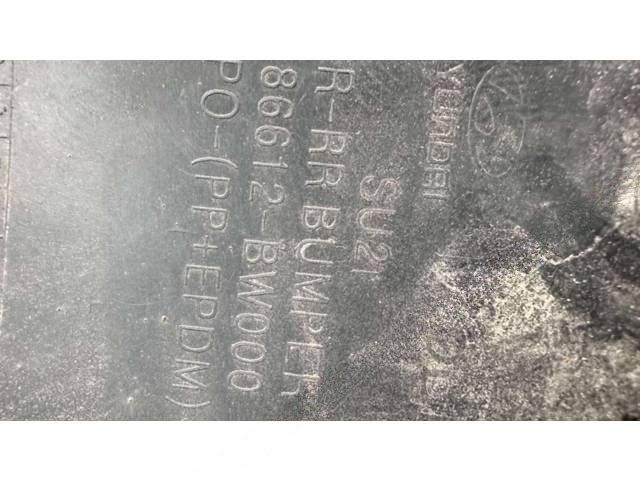 YUNDAI
SU2I
R-RR BUMPER
86612-BW000
PO-(PP+EPDM)